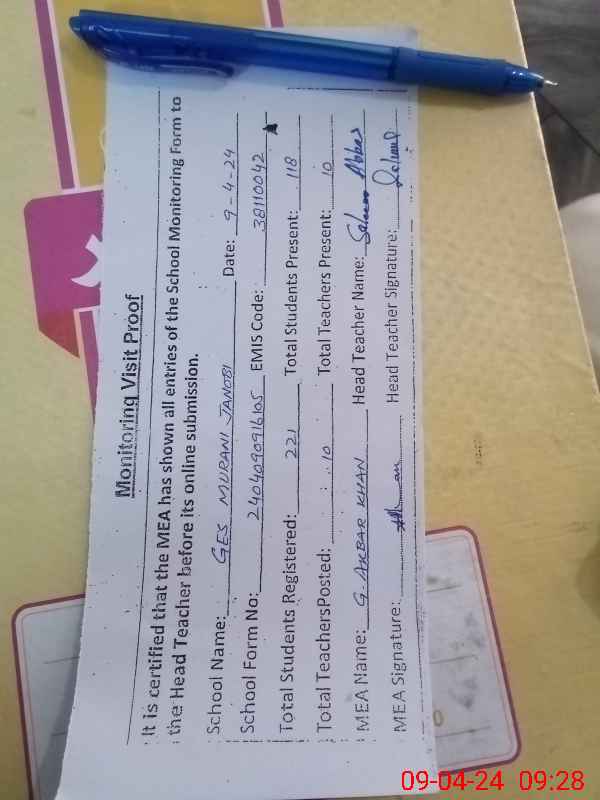 Monitoring Visit Proof
It is certified that the MEA has shown all entries of the School Monitoring Form to
the Head Teacher before its online submission.
School Name: GES MURANI JANOBI Date: 9-4-24
School Form No: 2404090916105 EMIS Code: 38110042
Total Students Registered: 221 Total Students Present: 118
Total TeachersPosted: 10 Total Teachers Present: 10
MEA Name: G. AKBAR KHAN Head Teacher Name: Salman Abbas
MEA Signature: Head Teacher Signature:
09-04-24 09:28